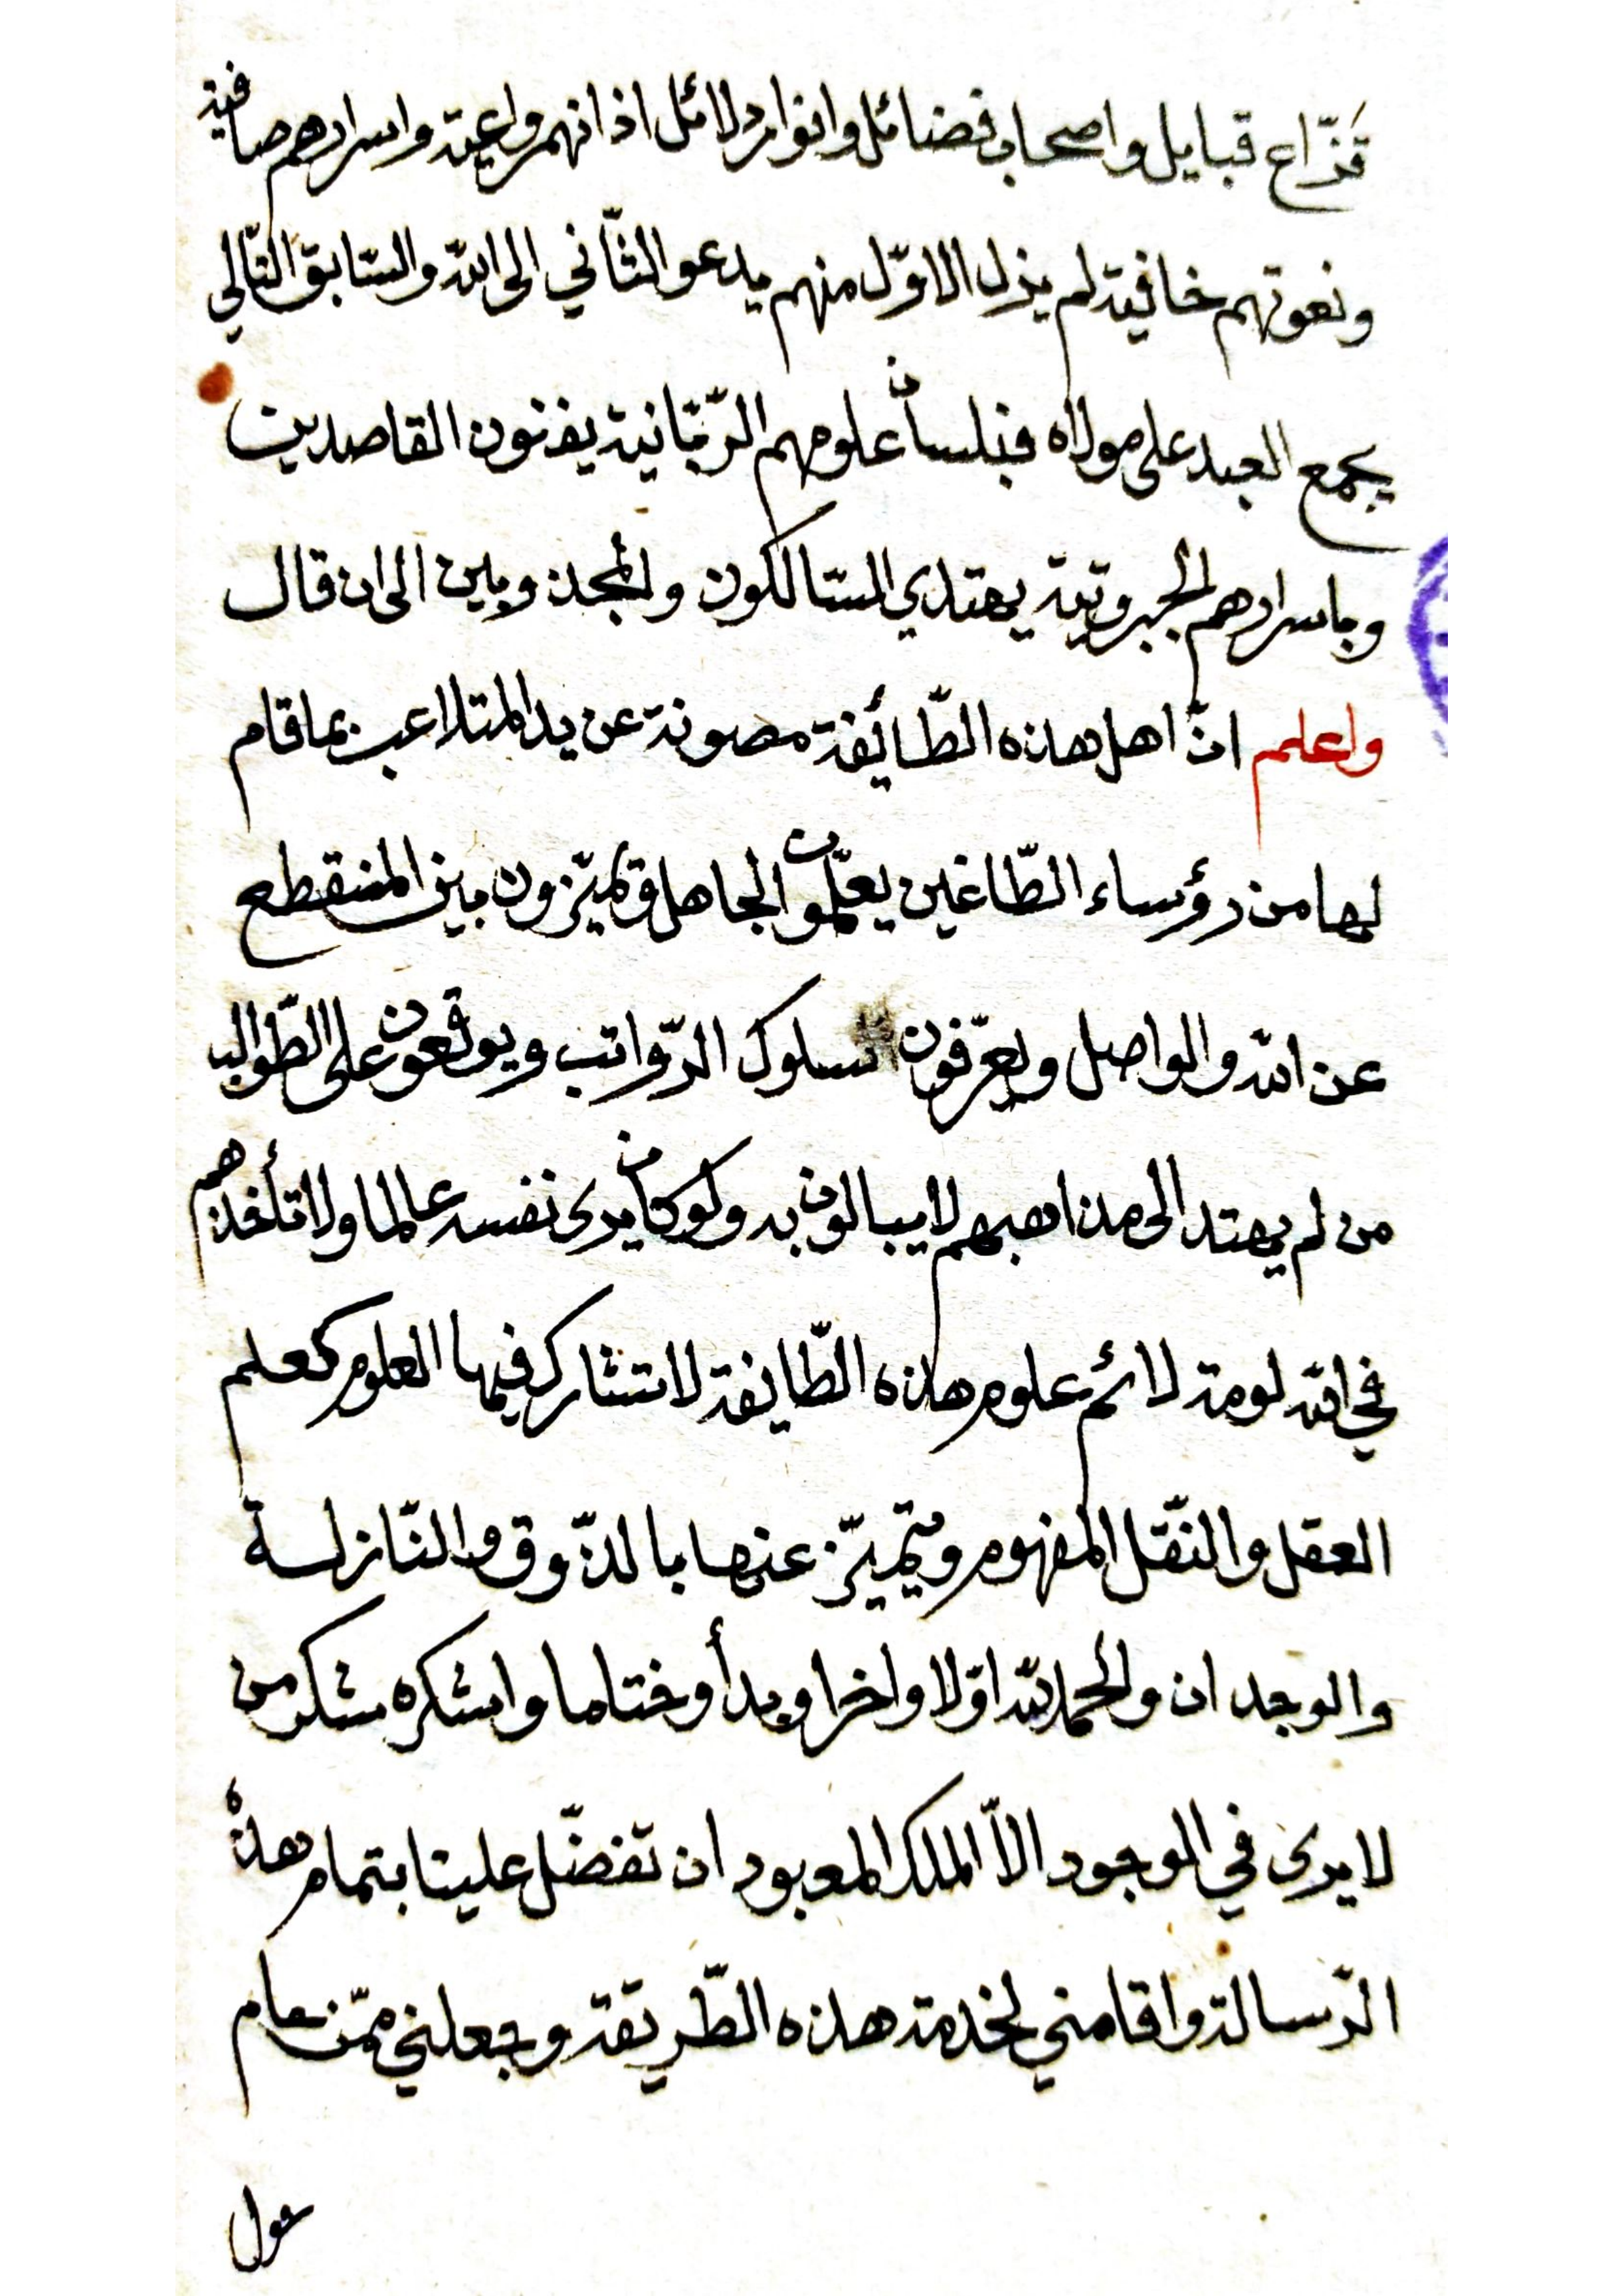 قزّاع قبايل واصحاب فضائل وانوار دلائل اذانهم واعية واسرارهم صافية
ونعوتهم خافية لم يزل الاوّل منهم يدعو الثّاني الى الله والسّابق التّالي
يجمع العبد على مولاه فبلسان علومهم الرّبّانية يفزنون القاصدين
وباسرارهم الجبروتية يهتدي السّالكون والمجذوبين الى ان قال
واعلم انّ اهل هذه الطّائفة مصونة عن يد المتلاعب بما قام
لها من رؤساء الطّاغين يعلّمون الجاهل ويميّزون بين المنقطع
عن الله والواصل ويعرّفون سلوك الرّواتب ويوقعون على الطّوالب
من لم يهتد الى مذاهبهم لا يبالون به ولو كان يرى نفسه عالما ولا تأخذهم
في الله لومة لائم علوم هذه الطّايفة لا تتشارك فيها العلوم كعلم
العقل والنّقل المفهوم ويتميّز عنها بالذّوق والنّازلة
والوجدان والحمد لله اوّلا واخرا وبدأ وختاما واشكره شكر من
لا يرى في الوجود الاّ الملك المعبود ان تفضّل علينا بتمام هذه
الرّسالة واقامني لخدمة هذه الطّريقة وجعلني ممّن عام